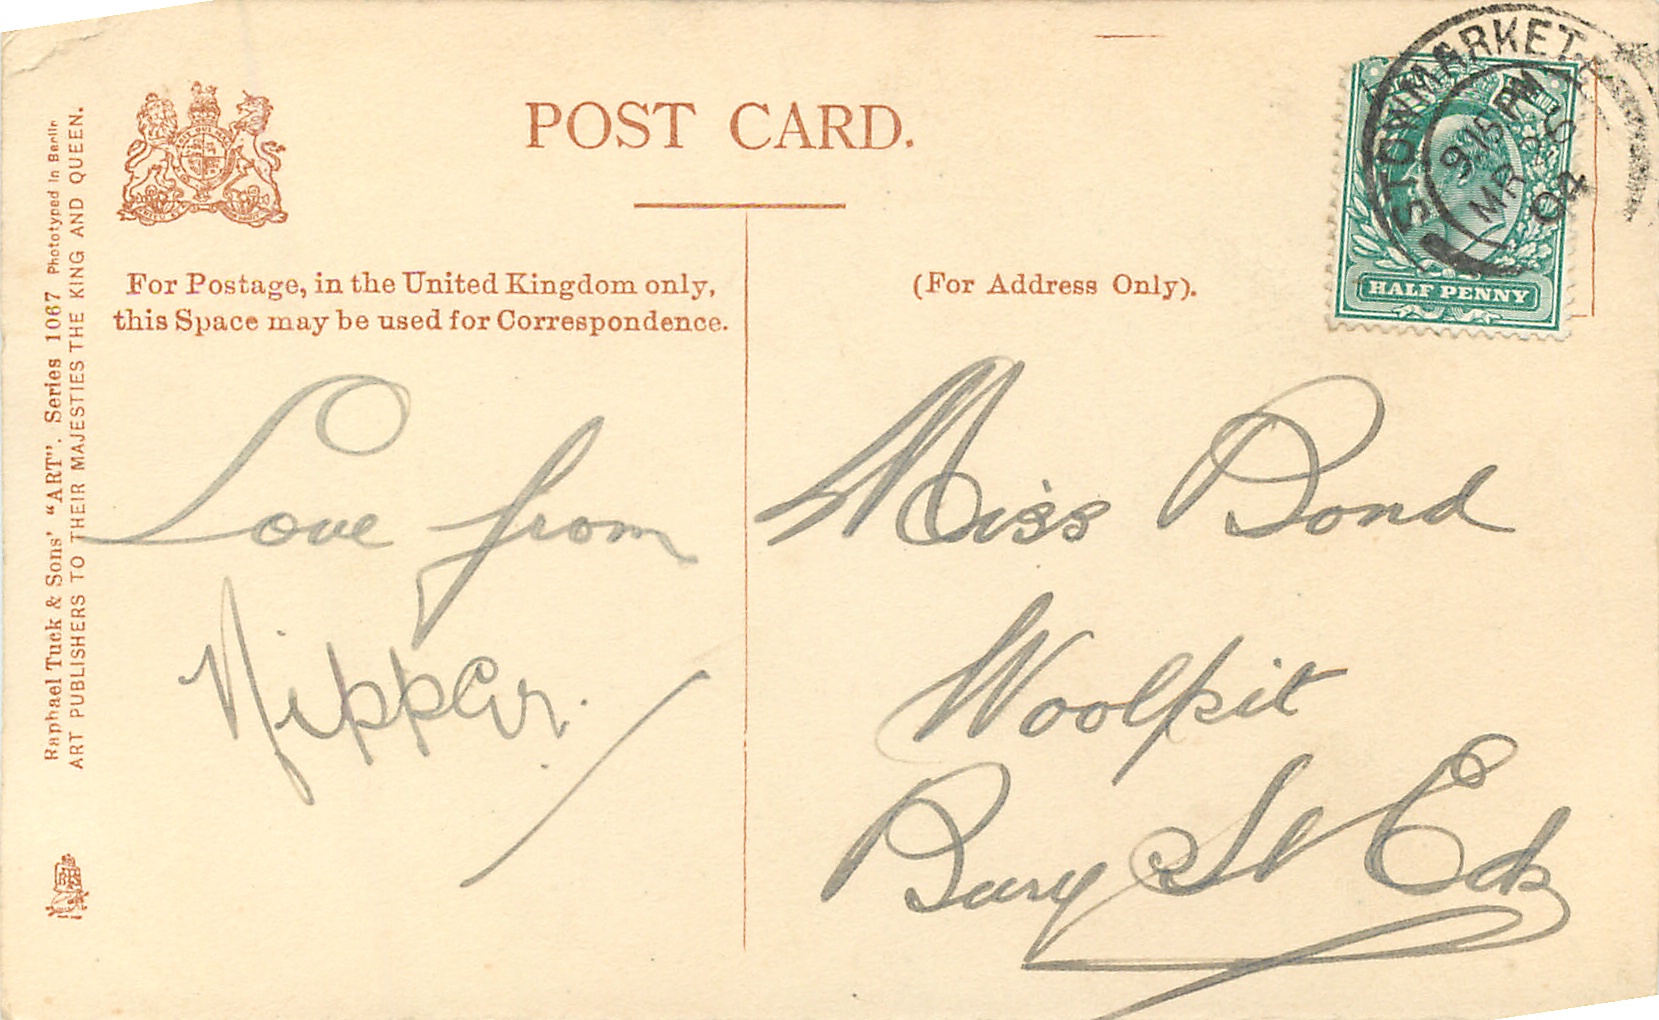 POST CARD.
For Postage, in the United Kingdom only,
this Space may be used for Correspondence.
(For Address Only).
STOWMARKET
9 15 PM
MR
04
HALF PENNY
Love from
Nipper.
Miss Bond
Woolpit
Bury St Eds
Raphael Tuck & Sons' "ART". Series 1067 Phototyped in Berlin
ART PUBLISHERS TO THEIR MAJESTIES THE KING AND QUEEN.